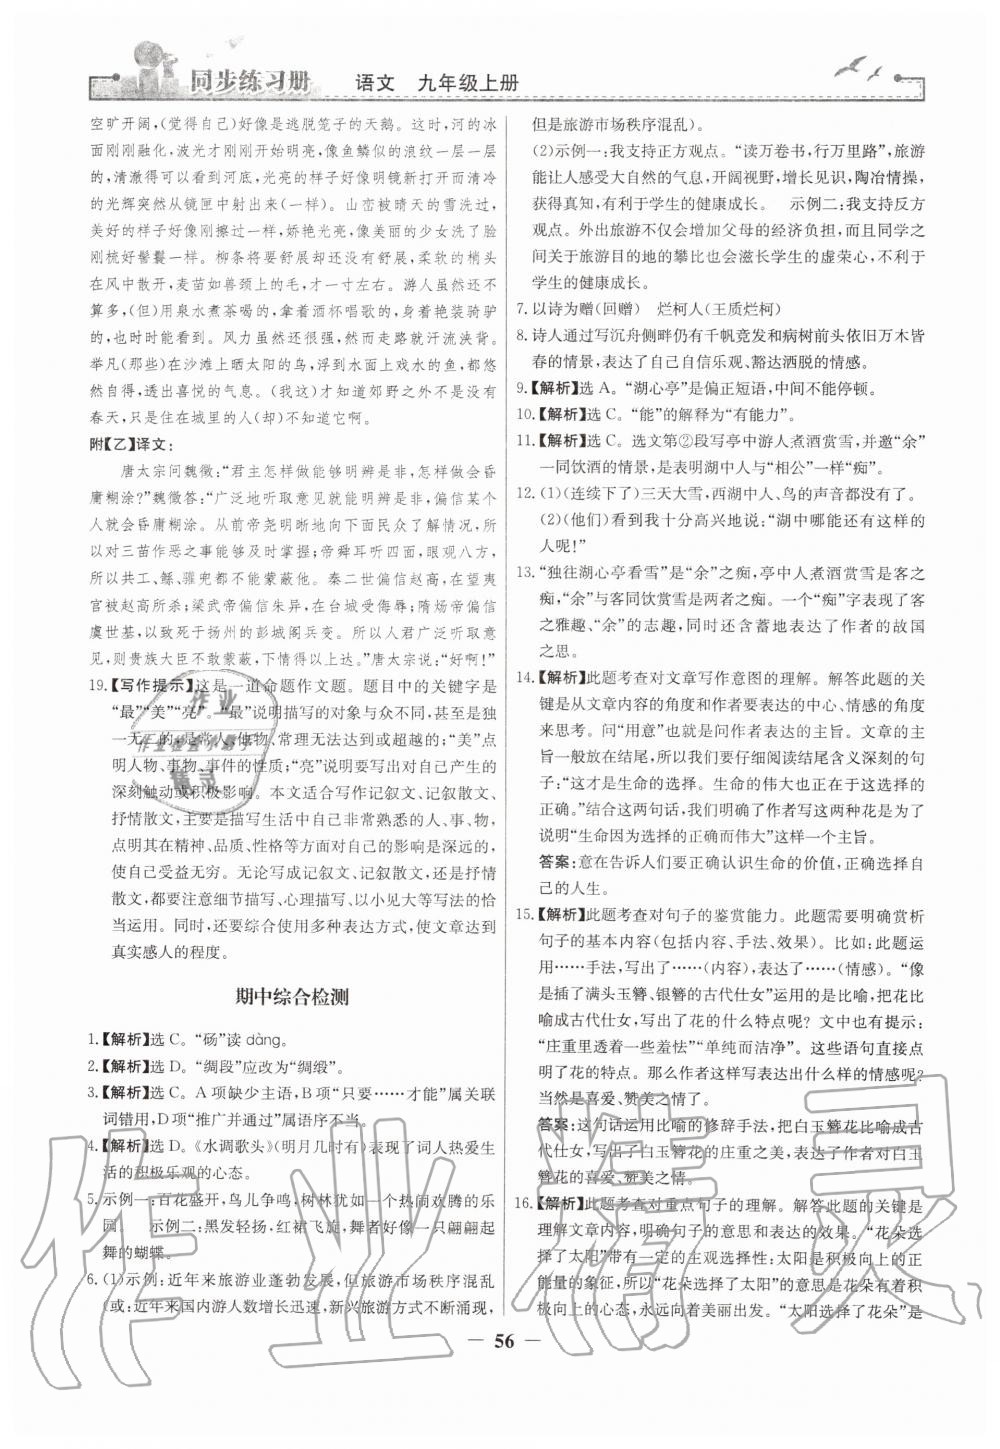 同步练习册 语文 九年级上册
空旷开阔,(觉得自己)好像是逃脱笼子的天鹅。这时,河的冰
面刚刚融化,波光粼粼刚刚开始明亮,像鱼鳞似的浪纹一层一层
的,清澈得可以看到河底,光亮的样子好像明镜新打开而清冷
的光辉突然从镜匣中射出来(一样)。山峦被晴天的雪洗过,
美好的样子好像刚擦过一样,娇艳光亮,(像)美丽的少女洗了脸
刚梳好髻鬟一样。柳条将要舒展却还未舒展,柔软的梢头
在风中散开,麦苗如兽颈上的毛,才一寸左右。游人虽然还不
算多,(但)用泉水煮茶喝的,拿着酒杯唱歌的,身着艳装骑驴
的,也时时能看到。风力虽然还很强,然而走路就汗流浃背。
举凡(那些)在沙滩上晒太阳的鸟,浮到水面上戏水的鱼,都悠然
自得,透出喜悦的气息。(我这)才知道郊野之外并不是没有
春天,只是住在城里的人(却)不知道它啊。
附【乙】译文:
唐太宗问魏徵:“君主怎样做能够明辨是非,怎样做会昏
庸糊涂?”魏徵答:“广泛地听取意见就能明辨是非,偏信某个
人就会昏庸糊涂。从前帝尧明晰地向下面民众了解情况,所
以对三苗作恶之事能够及时掌握;帝舜耳听四面,眼观八方,
所以共工、鲧、獾兜都不能蒙蔽他。秦二世偏信赵高,在望夷
宫被赵高所杀;梁武帝偏信朱异,在台城受侮辱;隋炀帝偏信
虞世基,以致死于扬州的彭城阁兵变。所以人君广泛听取意
见,则贵族大臣不敢蒙蔽,下情得以上达。”唐太宗说:“好啊!”
19.【写作提示】这是一道命题作文题。题目中的关键字是
“最”“美”“亮”。“最”说明描写的对象与众不同,甚至是独
一无二的,是常人、他物、常理无法达到或超越的;“美”点
明人物、事物、事件的性质;“亮”则要写出对自己产生的
深刻触动或积极影响。本文适合写作记叙文、记叙散文、
抒情散文,主要是描写生活中自己非常熟悉的人、事、物,
点明其在精神、品质、性格等方面对自己的影响是深远的,
使自己受益无穷。无论写成记叙文、记叙散文,还是抒情
散文,都要注意细节描写、心理描写、以小见大等写法的恰
当运用。同时,还要综合使用多种表达方式,使文章达到
真实感人的程度。
期中综合检测
1.【解析】选C。“砀”读dàng。
2.【解析】选D。“绸段”应改为“绸缎”。
3.【解析】选C。A项缺少主语,B项“只要……才能”属关联
词错用,D项“推广并通过”属语序不当。
4.【解析】选D。《水调歌头》(明月几时有)表现了词人热爱生
活的积极乐观的心态。
5.示例一:百花盛开,鸟儿争鸣,树林犹如一个热闹欢腾的乐
园。 示例二:黑发轻扬,红裙飞旋,舞者好像一只翩翩起
舞的蝴蝶。
6.(1)示例:近年来旅游业蓬勃发展,但旅游市场秩序混乱
(或:近年来国内游人数增长迅速,新兴旅游方式不断涌现,
但是旅游市场秩序混乱)。
(2)示例一:我支持正方观点。“读万卷书,行万里路”,旅游
能让人感受大自然的气息,开阔视野,增长见识,陶冶情操,
获得真知,有利于学生的健康成长。 示例二:我支持反方
观点。外出旅游不仅会增加父母的经济负担,而且同学之
间关于旅游目的地的攀比也会滋长学生的虚荣心,不利于
学生的健康成长。
7.以诗为赠(回赠) 烂柯人(王质烂柯)
8.诗人通过写沉舟侧畔仍有千帆竞发和病树前头依旧万木皆
春的情景,表达了自己自信乐观、豁达洒脱的情感。
9.【解析】选A。“湖心亭”是偏正短语,中间不能停顿。
10.【解析】选C。“能”的解释为“有能力”。
11.【解析】选C。选文第②段写亭中游人煮酒赏雪,并邀“余”
一同饮酒的情景,是表明湖中人与“相公”一样“痴”。
12.(1)(连续下了)三天大雪,西湖中人、鸟的声音都没有了。
(2)(他们)看到我十分高兴地说:“湖中哪能还有这样的
人呢!”
13.“独往湖心亭看雪”是“余”之痴,亭中人煮酒赏雪是客之
痴,“余”与客同饮赏雪是两者之痴。一个“痴”字表现了客
之雅趣、“余”的志趣,同时还含蓄地表达了作者的故国
之思。
14.【解析】此题考查对文章写作意图的理解。解答此题的关
键是从文章内容的角度和作者要表达的中心、情感的角度
来思考。问“用意”也就是问作者表达的主旨。文章的主
旨放在结尾,所以我们要仔细阅读结尾含义深刻的句
子:“这才是生命的选择。生命的伟大也正在于选择的
正确。”结合这两句话,我们明确了作者写这两种花是为了
说明“生命因为选择的正确而伟大”这样一个主旨。
答案:意在告诉人们要正确认识生命的价值,正确选择自
己的人生。
15.【解析】此题考查对句子的鉴赏能力。此题需要明确赏析
句子的基本内容(包括内容、手法、效果)。比如:此题运
用……手法,写出了……(内容),表达了……(情感)。“像
是插了满头玉簪、银簪的古代仕女”运用的是比喻,把花比
喻成古代仕女,写出了花的什么特点呢?文中也有提示:
“庄重里透着一些羞怯”“单纯而洁净”。这些语句直接点
明了花的特点。那么作者这样写表达出什么样的情感呢?
当然是喜爱、赞美之情了。
答案:这句话运用比喻的修辞手法,把白玉簪花比喻成古
代仕女,生动形象地写出了白玉簪花的庄重之美,表达了作者对白玉
簪花的喜爱、赞美之情。
16.【解析】此题考查对重点句子的理解。解答此题的关键是
理解文章内容,明确句子的意思和表达的效果。“花朵选
择了太阳”带有一定的主观选择性;太阳是积极向上的正
能量的象征,所以“花朵选择了太阳”的意思是花朵有着积
极向上的心态,永远向着美丽出发。“太阳选择了花朵”是
56
作业精灵